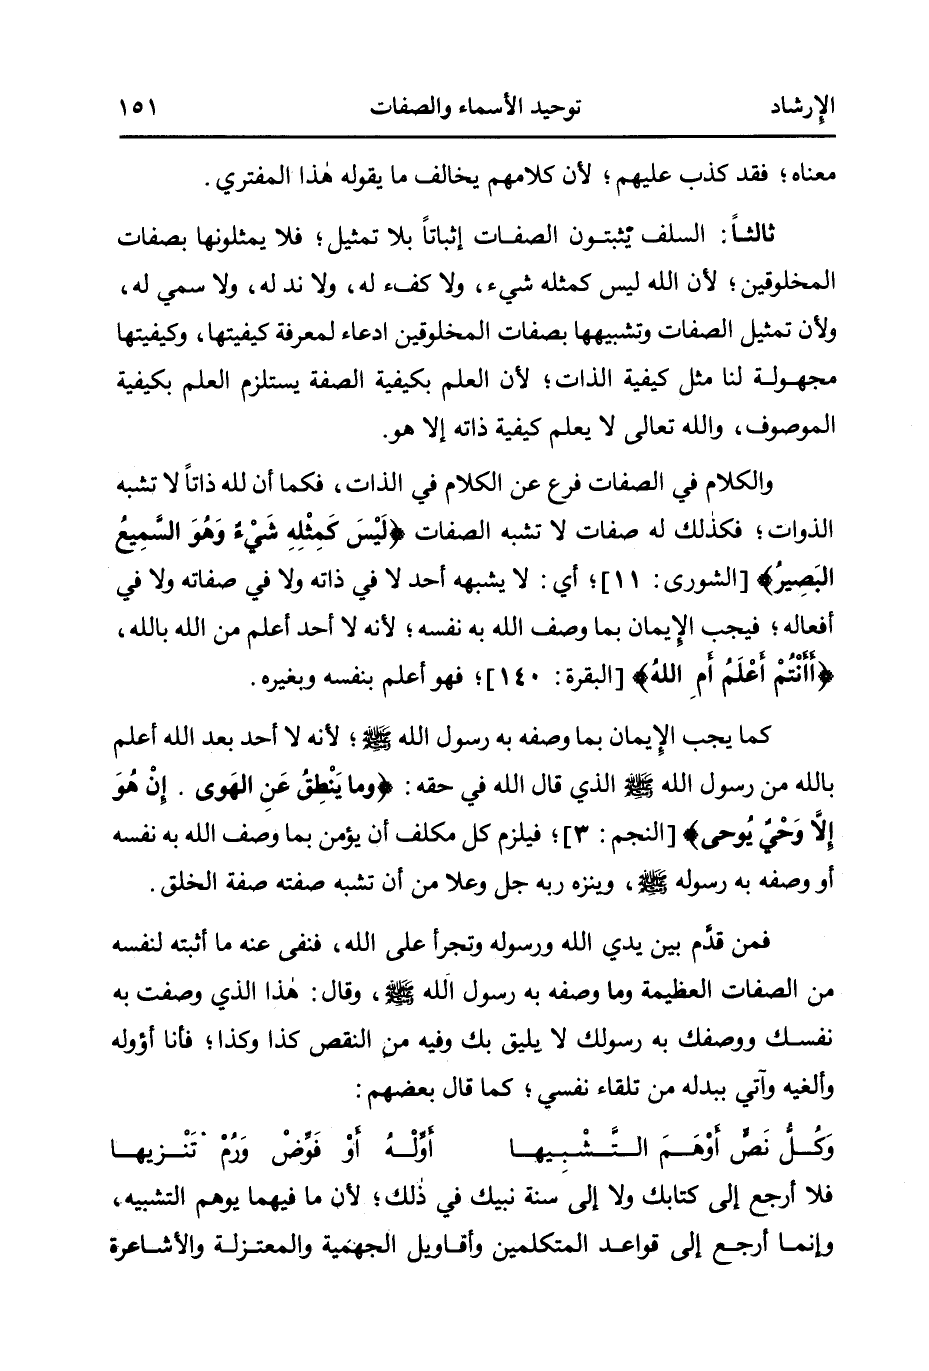 الإرشاد توحيد الأسماء والصفات ١٥١
معناه؛ فقد كذب عليهم؛ لأن كلامهم يخالف ما يقوله هٰذا المفتري.
ثالثاً: السلف يُثبتون الصفات إثباتاً بلا تمثيل؛ فلا يمثلونها بصفات
المخلوقين؛ لأن الله ليس كمثله شيء، ولا كفء له، ولا ند له، ولا سمي له،
ولأن تمثيل الصفات وتشبيهها بصفات المخلوقين ادعاء لمعرفة كيفيتها، وكيفيتها
مجهولة لنا مثل كيفية الذات؛ لأن العلم بكيفية الصفة يستلزم العلم بكيفية
الموصوف، والله تعالى لا يعلم كيفية ذاته إلا هو.
والكلام في الصفات فرع عن الكلام في الذات، فكما أن لله ذاتاً لا تشبه
الذوات؛ فكذٰلك له صفات لا تشبه الصفات ﴿لَيْسَ كَمِثْلِهِ شَيْءٌ وَهُوَ السَّمِيعُ
البَصِيرُ﴾ [الشورى: ١١]؛ أي: لا يشبهه أحد لا في ذاته ولا في صفاته ولا في
أفعاله؛ فيجب الإيمان بما وصف الله به نفسه؛ لأنه لا أحد أعلم من الله بالله،
﴿أَأَنْتُمْ أَعْلَمُ أَمِ اللهُ﴾ [البقرة: ١٤٠]؛ فهو أعلم بنفسه وبغيره.
كما يجب الإيمان بما وصفه به رسول الله ﷺ؛ لأنه لا أحد بعد الله أعلم
بالله من رسول الله ﷺ الذي قال الله في حقه: ﴿وما يَنْطِقُ عَنِ الهَوى . إِنْ هُوَ
إِلَّا وَحْيٌ يُوحى﴾ [النجم: ٣]؛ فيلزم كل مكلف أن يؤمن بما وصف الله به نفسه
أو وصفه به رسوله ﷺ، وينزه ربه جل وعلا من أن تشبه صفته صفة الخلق.
فمن قدَّم بين يدي الله ورسوله وتجرأ على الله، فنفى عنه ما أثبته لنفسه
من الصفات العظيمة وما وصفه به رسول الله ﷺ، وقال: هٰذا الذي وصفت به
نفسك ووصفك به رسولك لا يليق بك وفيه من النقص كذا وكذا؛ فأنا أؤوله
وألغيه وآتي ببدله من تلقاء نفسي؛ كما قال بعضهم:
وَكُلُّ نَصٍّ أَوْهَمَ التَّشْبِيها أَوِّلْهُ أَوْ فَوِّضْ وَرُمْ تَنْزيها
فلا أرجع إلى كتابك ولا إلى سنة نبيك في ذٰلك؛ لأن ما فيهما يوهم التشبيه،
وإنما أرجع إلى قواعد المتكلمين وأقاويل الجهمية والمعتزلة والأشاعرة